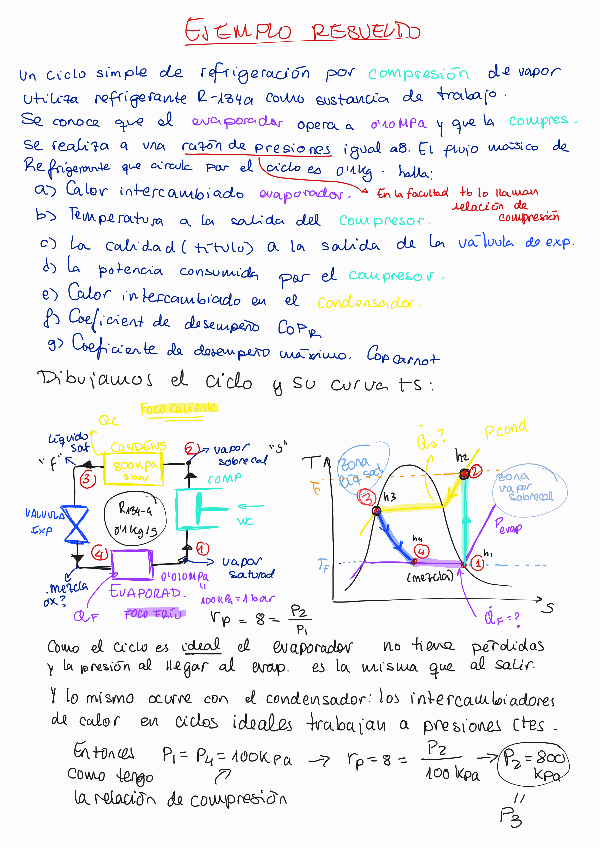 EJEMPLO RESUELTO
Un ciclo simple de refrigeración por compresión de vapor
utiliza refrigerante R-134a como sustancia de trabajo.
Se conoce que el evaporador opera a 0'10MPa y que la compres.
se realiza a una razón de presiones igual a8. El flujo másico de
Refrigerante que circula por el ciclo es 0'1kg. halla:
a) Calor intercambiado evaporador.
En la facultad tb lo llaman
relación de
compresión
b) Temperatura a la salida del compresor.
c) La calidad (título) a la salida de la válvula de exp.
d) la potencia consumida por el compresor.
e) Calor intercambiado en el condensador.
f) Coeficient de desempeño COPR
g) Coeficiente de desempeño máximo. Copcarnot
Dibujamos el ciclo y su curva ts:
FOCO CALIENTE
QC
líquido
sat
"f"
CONDENS
800KPa
8bar
2
vapor
sobrecal
"s"
COMP
3
VALVULA
EXP
R134-a
0'1kg/s
WC
4
1
mezcla
¿x?
EVAPORAD.
0'010MPa
"
100KPa = 1bar
vapor
saturad
QF
FOCO FRÍO
T
zona
líq sat.
Q̇c?
Pcond
h2
2
Tc
3
h3
zona
vapor
sobrecal
Pevap
h4
4
h1
1
TF
(mezcla)
Q̇F=?
S
rp = 8 = P2/P1
Como el ciclo es ideal el evaporador no tiene pérdidas
y la presión al llegar al evap. es la misma que al salir.
Y lo mismo ocurre con el condensador: los intercambiadores
de calor en ciclos ideales trabajan a presiones ctes.
Entonces P1 = P4 = 100KPa → rp = 8 = P2/100KPa → P2 = 800 KPa
como tengo
la relación de compresión
"
P3